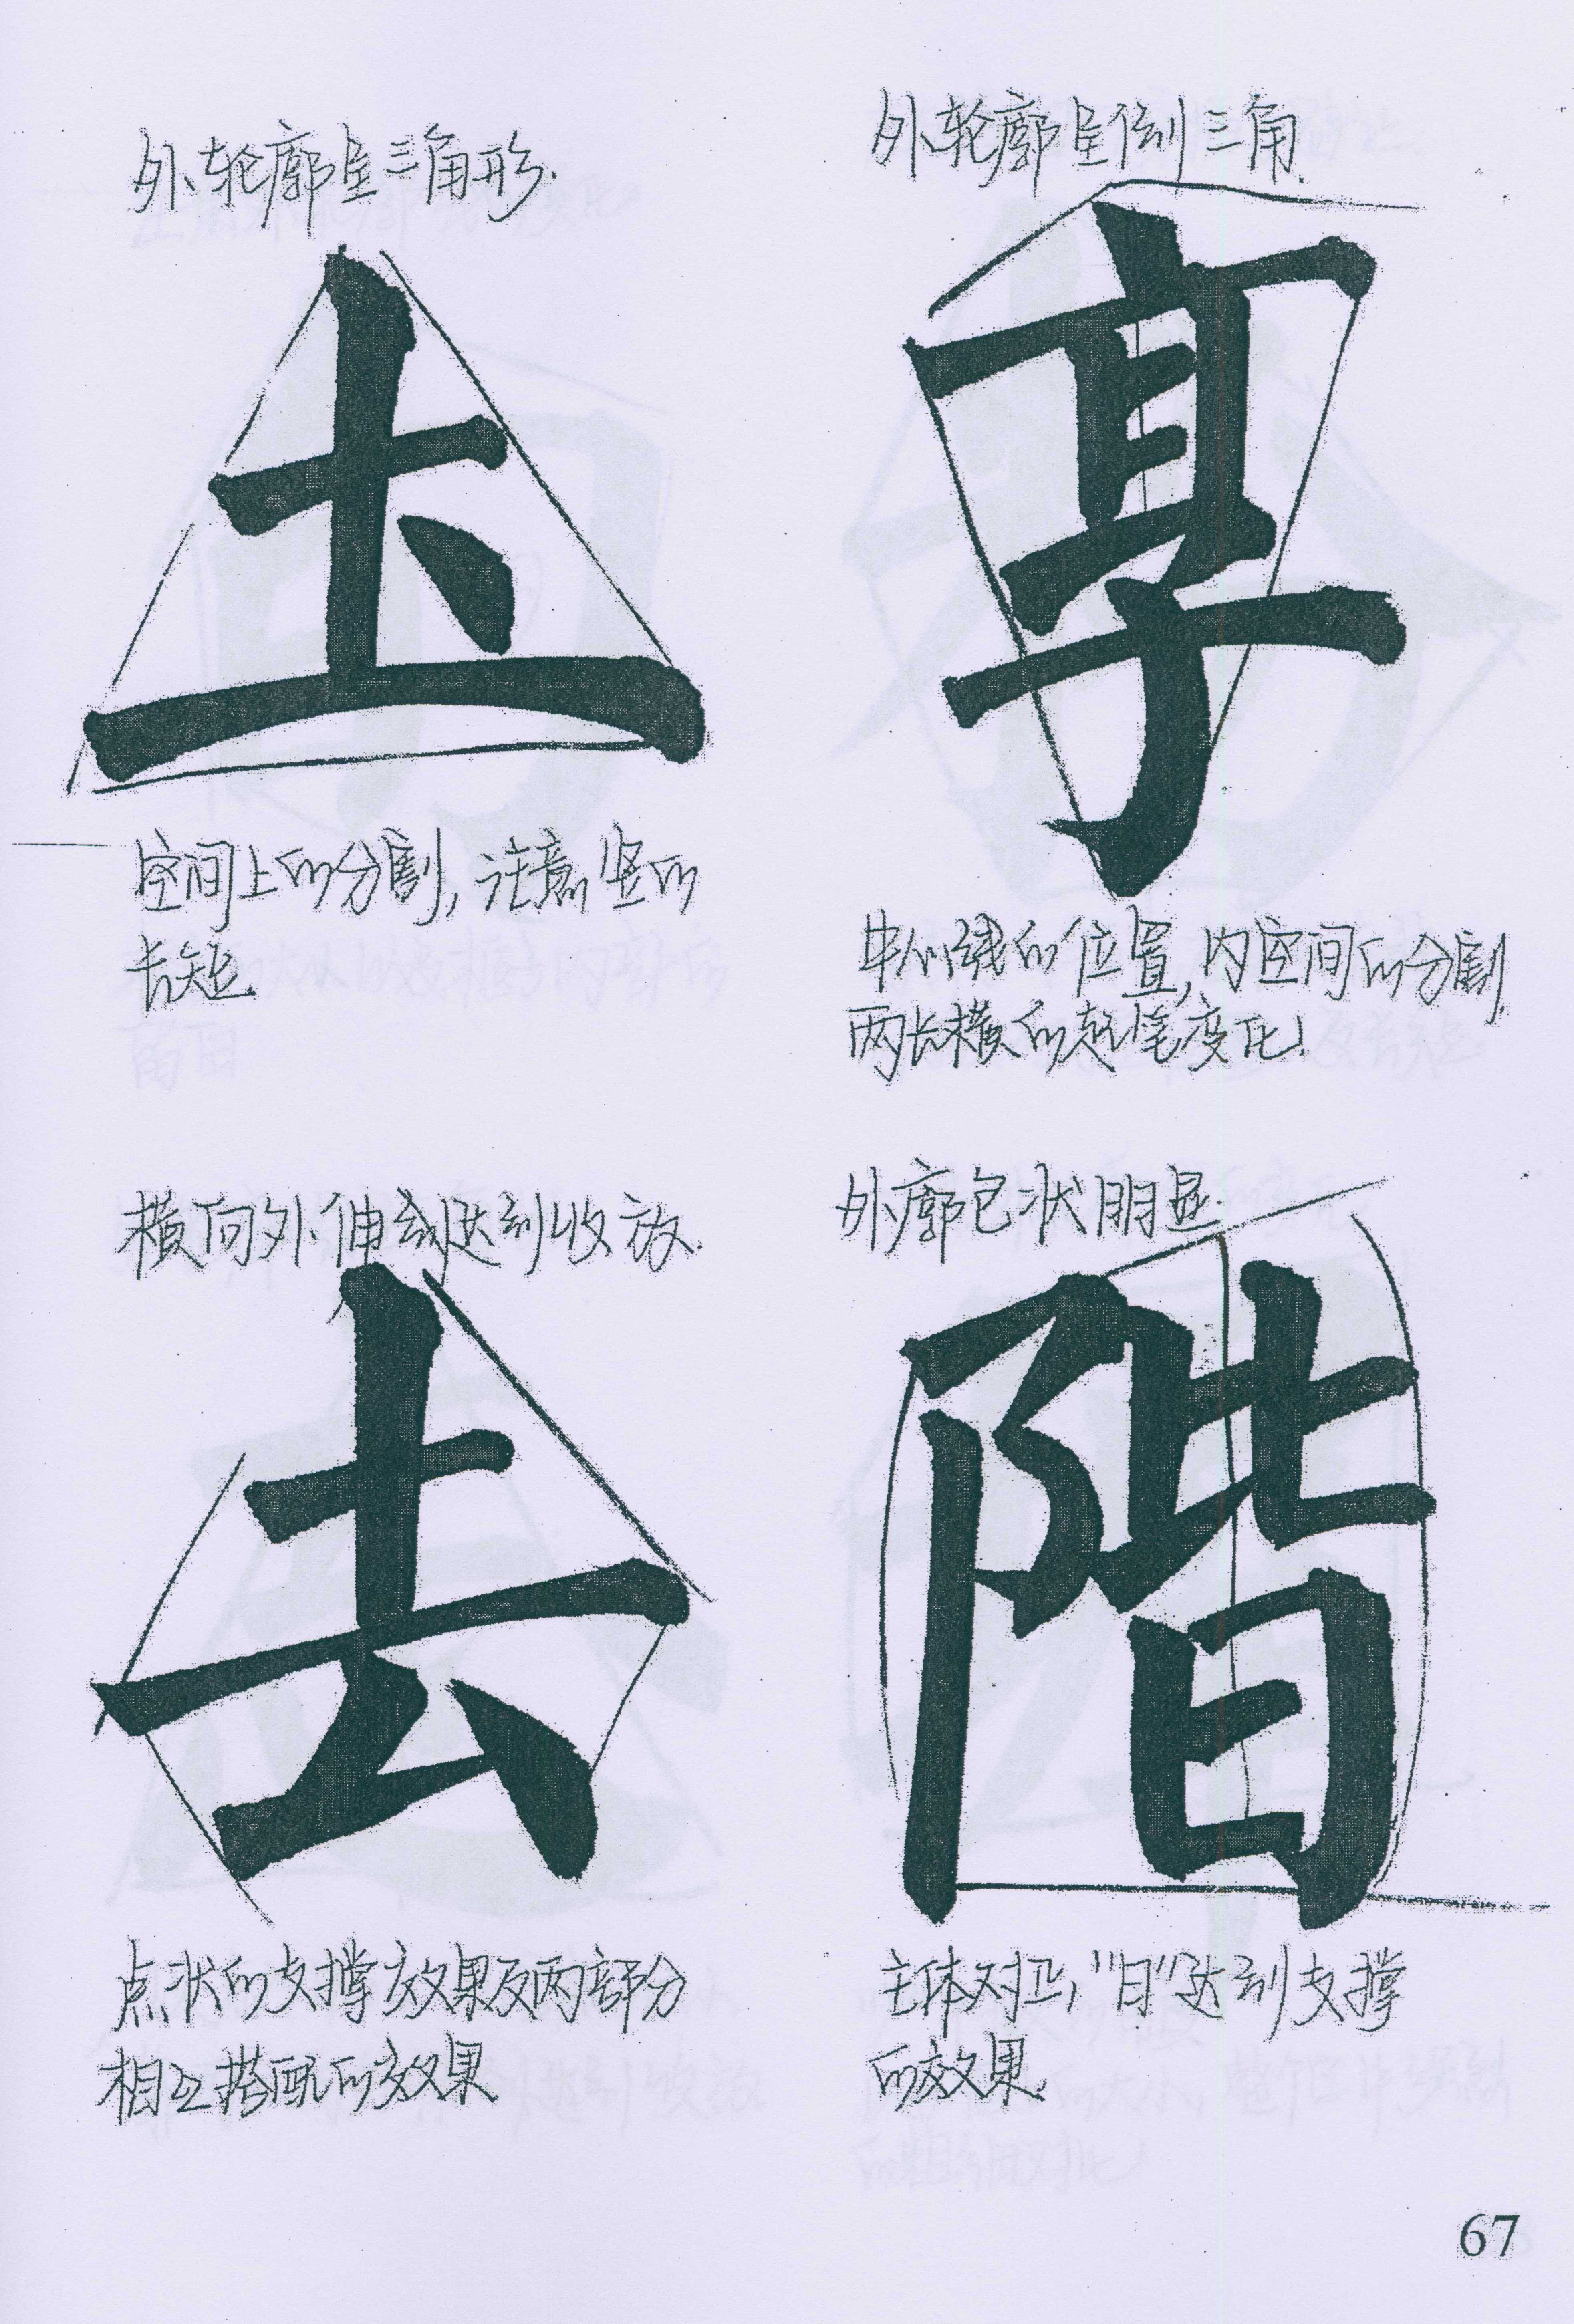 外轮廓呈三角形.
圡
空间上的分割,注意竖的
长短
外轮廓呈倒三角.
享
中心线的位置,内空间的分割.
两长横的起笔变化.
横向外伸达到收放.
去
点状的支撑效果及两部分
相互搭配的效果
外廓包状明显.
階
主体对正,"日"达到支撑
的效果.
67